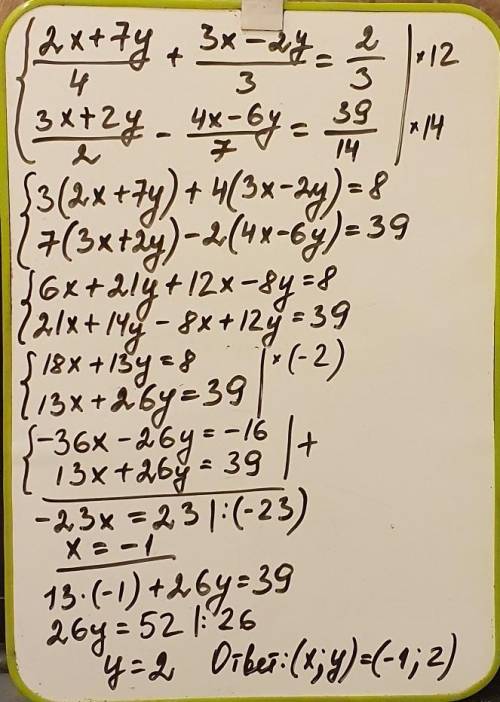 { (2x+7y)/4 + (3x-2y)/3 = 2/3 | ×12
(3x+2y)/2 - (4x-6y)/7 = 39/14 | ×14
{ 3(2x+7y)+4(3x-2y)=8
7(3x+2y)-2(4x-6y)=39
{ 6x+21y+12x-8y=8
21x+14y-8x+12y=39
{ 18x+13y=8 | ×(-2)
13x+26y=39
{ -36x-26y=-16 | +
13x+26y=39
-23x=23 |:(-23)
x=-1
13·(-1)+26y=39
26y=52 |:26
y=2 Ответ:(x;y)=(-1;2)